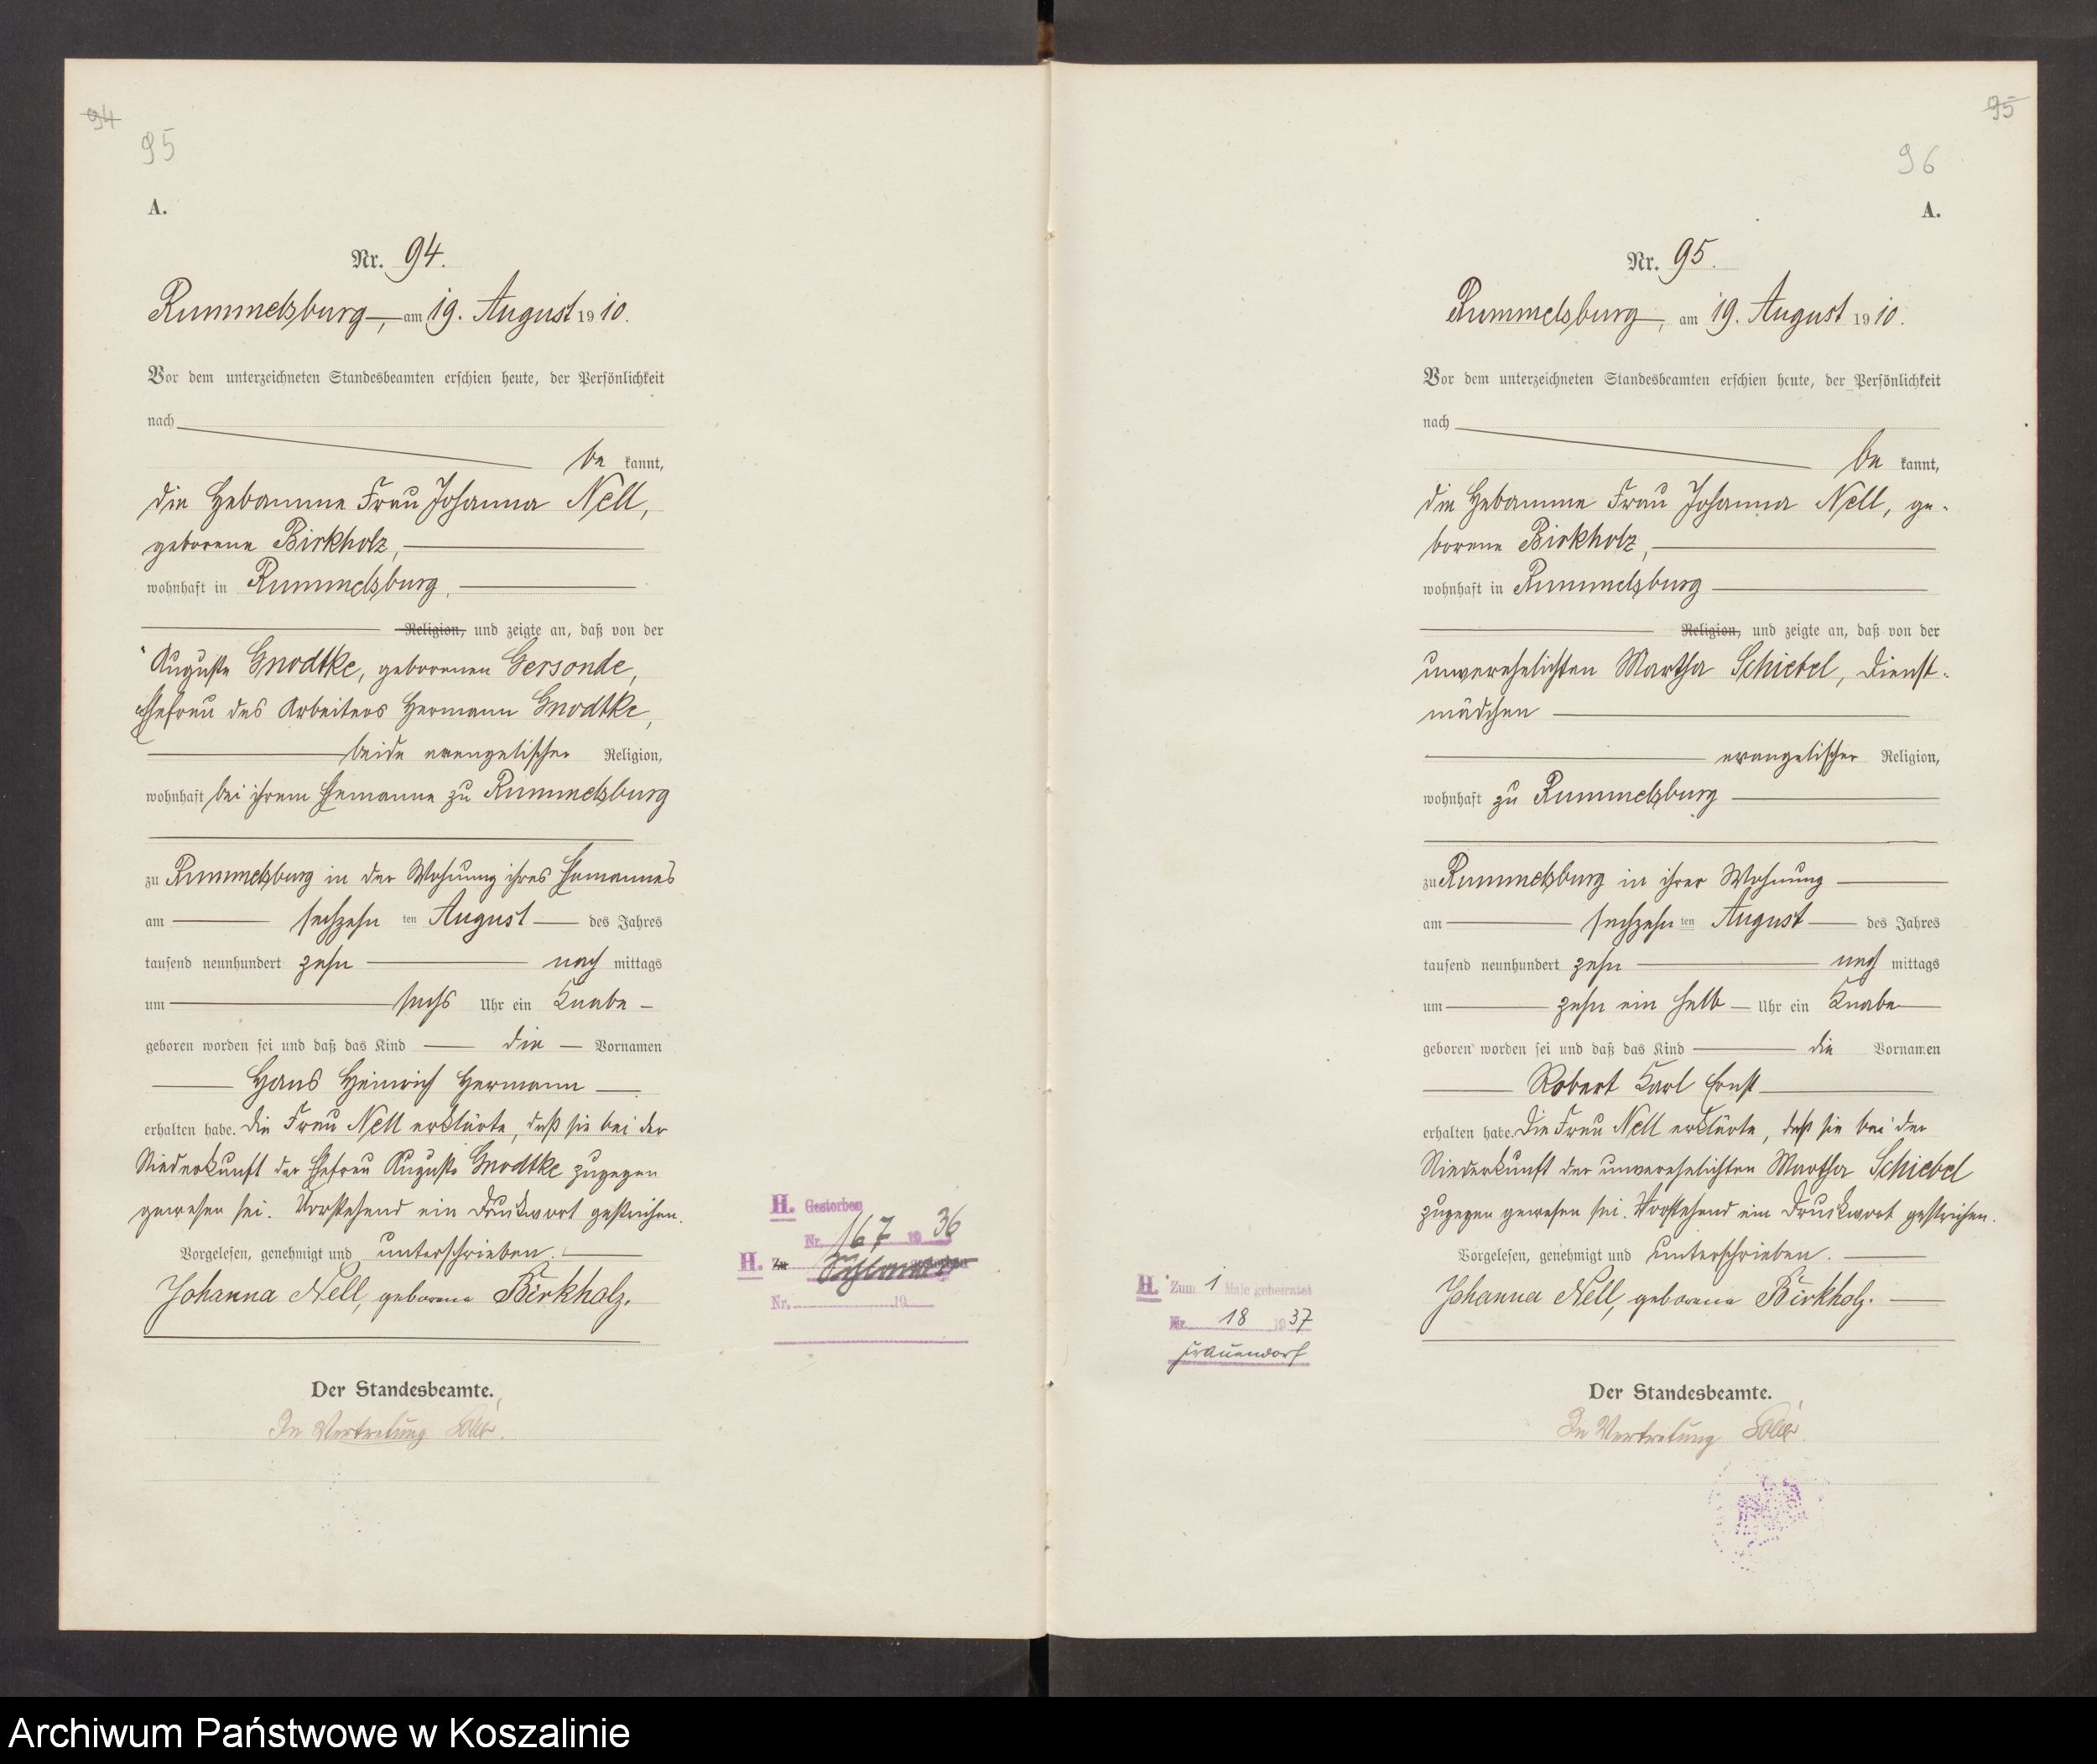 94
95
A.
Nr. 94.
Rummelsburg, am 19. August 1910.
Vor dem unterzeichneten Standesbeamten erschien heute, der Persönlichkeit
nach
be kannt,
die Hebamme Frau Johanna Nell,
geborene Birkholz,
wohnhaft in Rummelsburg,
Religion, und zeigte an, daß von der
Auguste Gnodtke, geborenen Gersonde,
Ehefrau des Arbeiters Hermann Gnodtke,
beide evangelischer Religion,
wohnhaft bei ihrem Ehemanne zu Rummelsburg
zu Rummelsburg in der Wohnung ihres Ehemannes
am sechzehn ten August des Jahres
tausend neunhundert zehn nach mittags
um sechs Uhr ein Knabe
geboren worden sei und daß das Kind die Vornamen
Hans Heinrich Hermann
erhalten habe. Die Frau Nell erklärte, daß sie bei der
Niederkunft der Ehefrau Auguste Gnodtke zugegen
gewesen sei. Vorstehend ein Druckwort gestrichen.
Vorgelesen, genehmigt und unterschrieben.
Johanna Nell, geborene Birkholz.
Der Standesbeamte.
In Vertretung
H. Gestorben
Nr. 167 1936
H. Zu
Nr. 19
95
96
A.
Nr. 95.
Rummelsburg, am 19. August 1910.
Vor dem unterzeichneten Standesbeamten erschien heute, der Persönlichkeit
nach
be kannt,
die Hebamme Frau Johanna Nell, ge-
borene Birkholz,
wohnhaft in Rummelsburg
Religion, und zeigte an, daß von der
unverehelichten Martha Schiebel, Dienst-
mädchen
evangelischer Religion,
wohnhaft zu Rummelsburg
zu Rummelsburg in ihrer Wohnung
am sechzehn ten August des Jahres
tausend neunhundert zehn nach mittags
um zehn ein halb Uhr ein Knabe
geboren worden sei und daß das Kind die Vornamen
Robert Karl Ernst
erhalten habe. Die Frau Nell erklärte, daß sie bei der
Niederkunft der unverehelichten Martha Schiebel
zugegen gewesen sei. Vorstehend ein Druckwort gestrichen.
Vorgelesen, genehmigt und unterschrieben.
Johanna Nell, geborene Birkholz.
Der Standesbeamte.
In Vertretung
H. Zum 1 Male geheiratet
Nr. 18 1937
Frauendorf
Archiwum Państwowe w Koszalinie